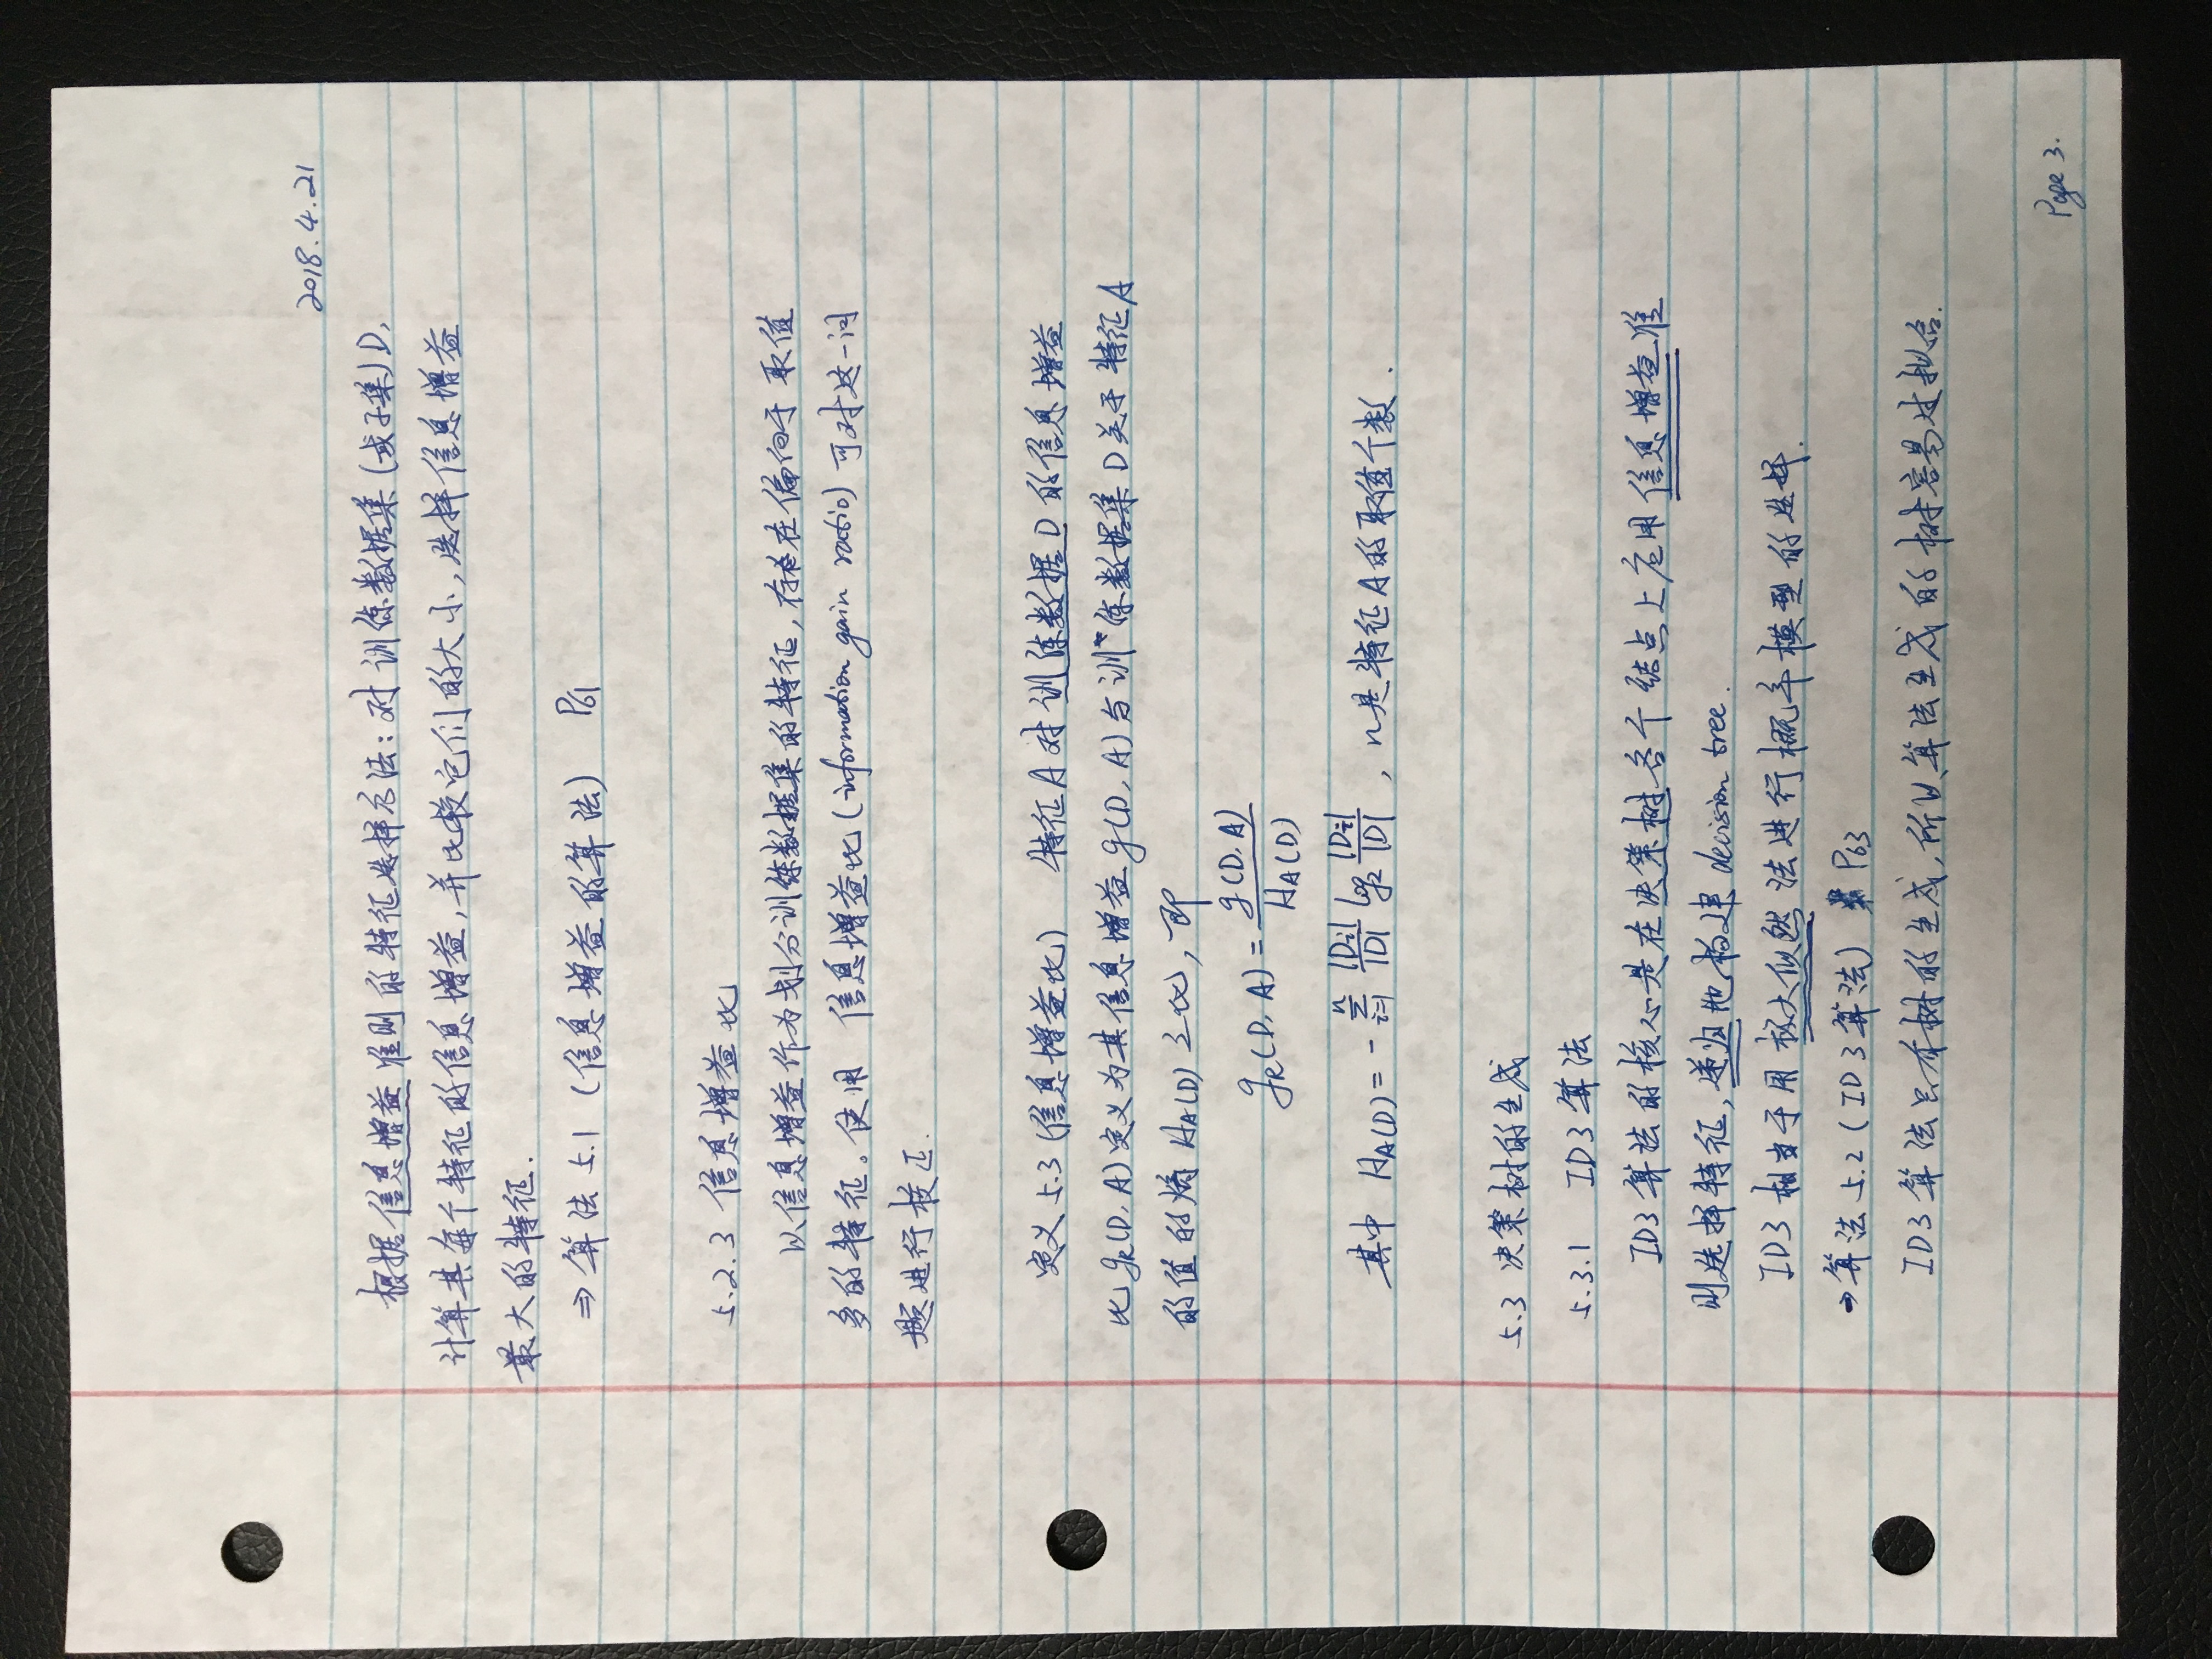 2018.4.21
根据信息增益准则的特征选择方法:对训练数据集(或子集)D,
计算其每个特征的信息增益,并比较它们的大小,选择信息增益
最大的特征.
⇒ 算法 5.1 (信息增益的算法) P61
5.2.3 信息增益比
以信息增益作为划分训练数据集的特征,存在偏向于取值
多的特征。使用 信息增益比(information gain ratio)可对这一问
题进行校正.
定义 5.3 (信息增益比) 特征A对训练数据D的信息增益
比 g_R(D, A)定义为其信息增益 g(D, A)与训练数据集D关于特征A
的值的熵 H_A(D)之比,即
g_R(D, A) = g(D, A) / H_A(D)
其中 H_A(D) = - Σ_{i=1}^{n} |Di|/|D| log₂ |Di|/|D| , n是特征A的取值个数.
5.3 决策树的生成
5.3.1 ID3算法
ID3算法的核心是在决策树各个结点上应用信息增益准
则选择特征,递归地构建 decision tree.
ID3相当于用极大似然法进行概率模型的选择.
→算法 5.2 (ID3算法) P63
ID3算法只有树的生成,所以算法生成的树容易过拟合.
Page 3.